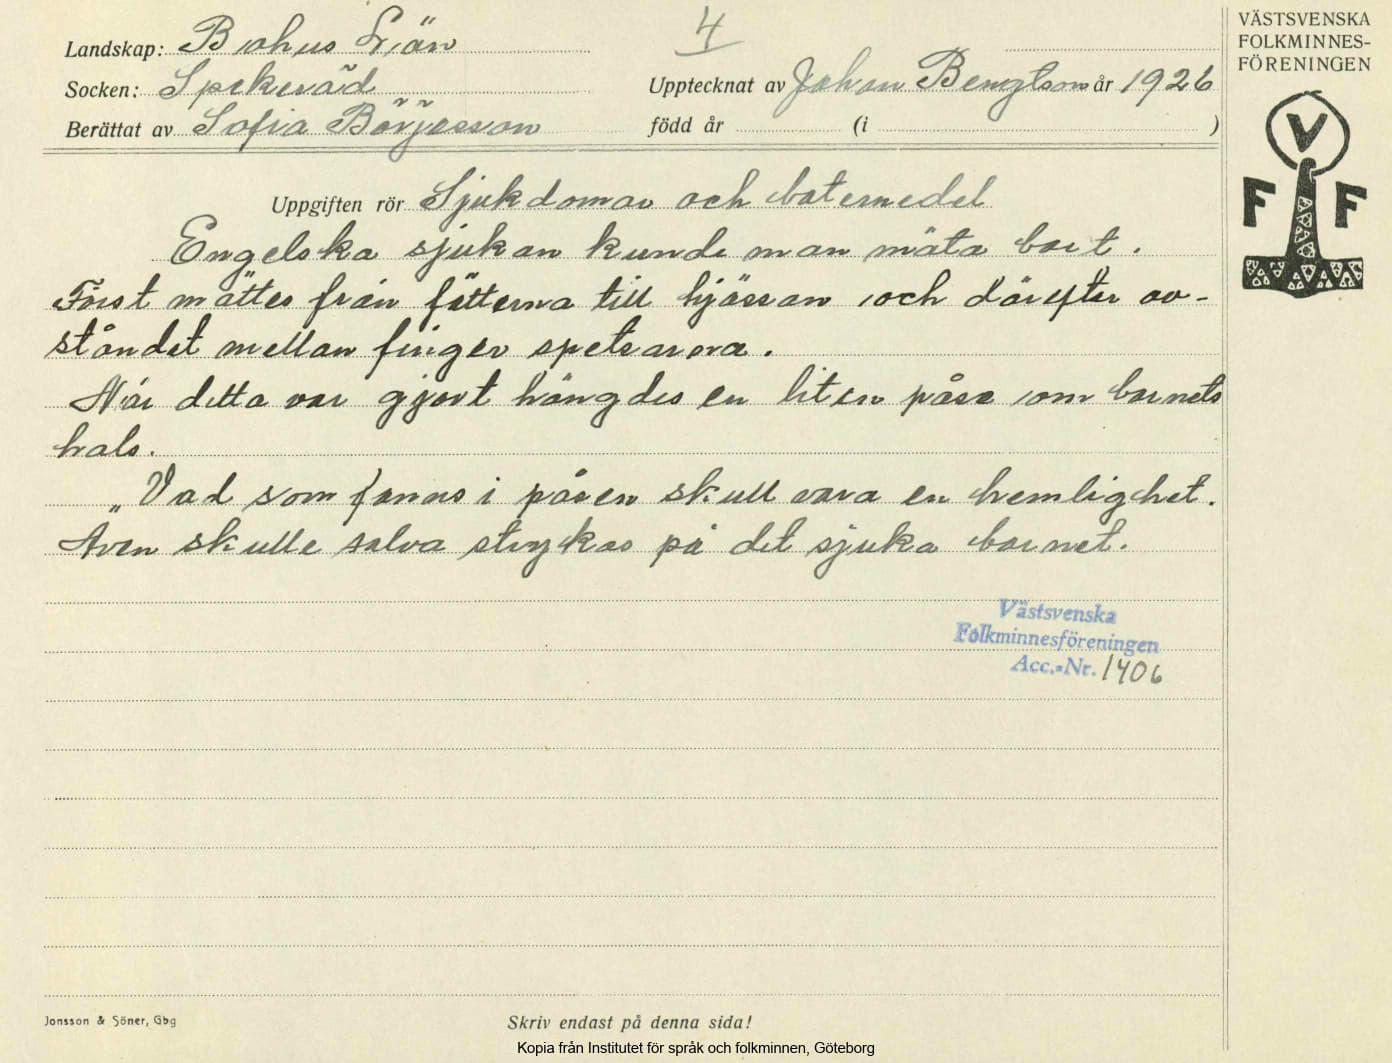 VÄSTSVENSKA
FOLKMINNES-
FÖRENINGEN
V
F F
4
Landskap: Bohus Län
Socken: Spekeröd
Upptecknat av Johan Bengtson år 1926
Berättat av Sofia Börjesson
född år (i )
Uppgiften rör Sjukdomar och botemedel
Engelska sjukan kunde man mäta bort.
Först mättes från fötterna till hjässan och därefter av-
ståndet mellan finger spetsarna.
När detta var gjort hängdes en liten påse om barnets
hals.
„Vad som fanns i påsen skull vara en hemlighet.
Även skulle salva strykas på det sjuka barnet.
Västsvenska
Folkminnesföreningen
Acc.-Nr. 1406
Jonsson & Söner, Gbg
Skriv endast på denna sida!
Kopia från Institutet för språk och folkminnen, Göteborg